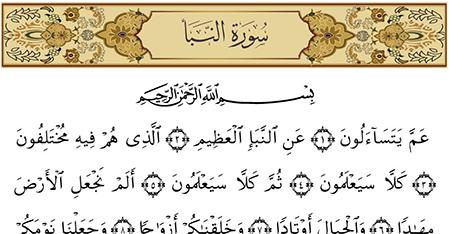 سُورَةُ النَّبَأ
بِسْمِ اللَّهِ الرَّحْمَٰنِ الرَّحِيمِ
عَمَّ يَتَسَآءَلُونَ ﴿١﴾ عَنِ النَّبَإِ الْعَظِيمِ ﴿٢﴾ الَّذِى هُمْ فِيهِ مُخْتَلِفُونَ
﴿٣﴾ كَلَّا سَيَعْلَمُونَ ﴿٤﴾ ثُمَّ كَلَّا سَيَعْلَمُونَ ﴿٥﴾ أَلَمْ نَجْعَلِ الْأَرْضَ
مِهَٰدًا ﴿٦﴾ وَالْجِبَالَ أَوْتَادًا ﴿٧﴾ وَخَلَقْنَٰكُمْ أَزْوَٰجًا ﴿٨﴾ وَجَعَلْنَا نَوْمَكُمْ